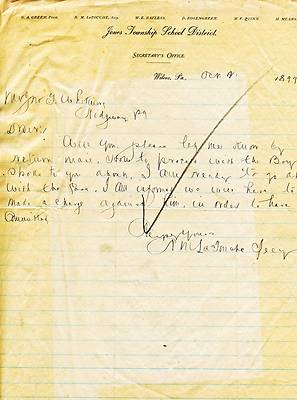 G. A. GREEN, Prest. R. M. LaTOUCHE, Sec. W. E. BAYLESS. D. ROSENGREEN. W. F. QUINN.
Jones Township School District.
SECRETARY'S OFFICE.
Wilcox, Pa. 1899
Ridgway Pa
Dear Sir
Will you please let me know by
return mail, How to proceed with the Boy I
spoke to you about, I am ready to go ahead
with the I am informed we will have to
make a charge against him, in order to have
committed
Yours
R M LaTouche Secy